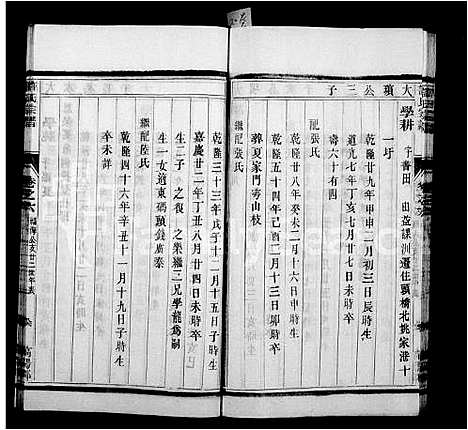 大瓌公三子
學耕 字 書田 由益課洲遷住頭橋北姚家港十
一圩
乾隆廿九年甲申二月初三日辰時生
道光七年丁亥七月廿七日未時卒
壽六十有四
配張氏
乾隆廿八年癸未二月十六日申時生
乾隆五十四年己酉二月十三日卯時卒
葬夏家門秀山枝
繼配張氏
乾隆三十三年戊子十二月十五日子時生
嘉慶廿二年丁丑八月廿四日未時卒
生二子 之復 之樂繼三兄學龍為嗣
生一女適東碼頭錢廣泰
繼配陸氏
乾隆四十六年辛丑十一月十九日子時生
卒未詳
卷之六